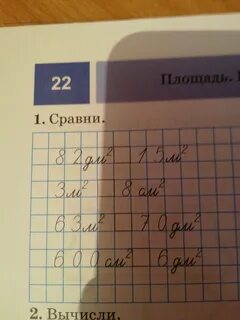 22
Площадь.
1. Сравни.
82дм² 15м²
3м² 8см²
63м² 70дм²
600см² 6дм²
2. Вычисли.